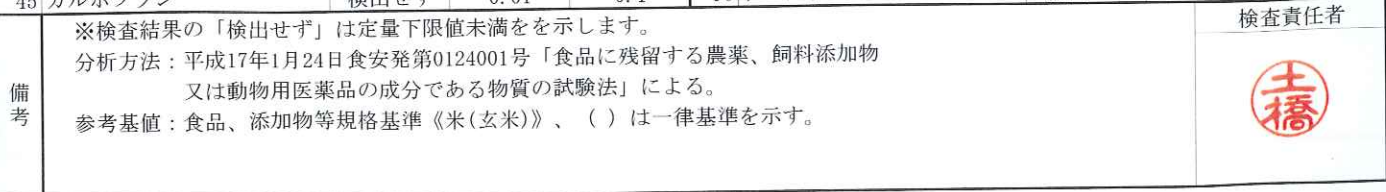 45 カルボフラン 検出せず 0.01
※検査結果の「検出せず」は定量下限値未満をを示します。
検査責任者
分析方法：平成17年1月24日食安発第0124001号「食品に残留する農薬、飼料添加物
又は動物用医薬品の成分である物質の試験法」による。
備考
参考基値：食品、添加物等規格基準《米(玄米)》、（ ）は一律基準を示す。
土橋